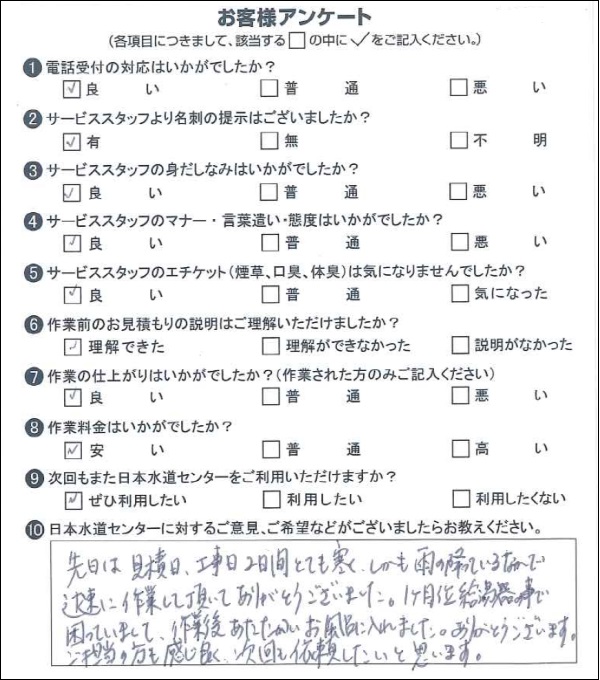 お客様アンケート
(各項目につきまして、該当する□の中に✓をご記入ください。)
❶ 電話受付の対応はいかがでしたか?
☑ 良い □ 普通 □ 悪い
❷ サービススタッフより名刺の提示はございましたか?
☑ 有 □ 無 □ 不明
❸ サービススタッフの身だしなみはいかがでしたか?
☑ 良い □ 普通 □ 悪い
❹ サービススタッフのマナー・言葉遣い・態度はいかがでしたか?
☑ 良い □ 普通 □ 悪い
❺ サービススタッフのエチケット(煙草、口臭、体臭)は気になりませんでたか?
☑ 良い □ 普通 □ 気になった
❻ 作業前のお見積もりの説明はご理解いただけましたか?
☑ 理解できた □ 理解ができなかった □ 説明がなかった
❼ 作業の仕上がりはいかがでしたか?(作業された方のみご記入ください)
☑ 良い □ 普通 □ 悪い
❽ 作業料金はいかがでしたか?
☑ 安い □ 普通 □ 高い
❾ 次回もまた日本水道センターをご利用いただけますか?
☑ ぜひ利用したい □ 利用したい □ 利用したくない
❿ 日本水道センターに対するご意見、ご希望などがございましたらお教えください。
先日は見積日、工事日2日間とても寒く、しかも雨の降っているなかで
迅速に作業して頂いてありがとうございました。1ヶ月位給湯器の事で
困っていまして、作業後あたたかいお風呂に入れました。ありがとうございます。
ご担当の方も感じ良く、次回も依頼したいと思います。